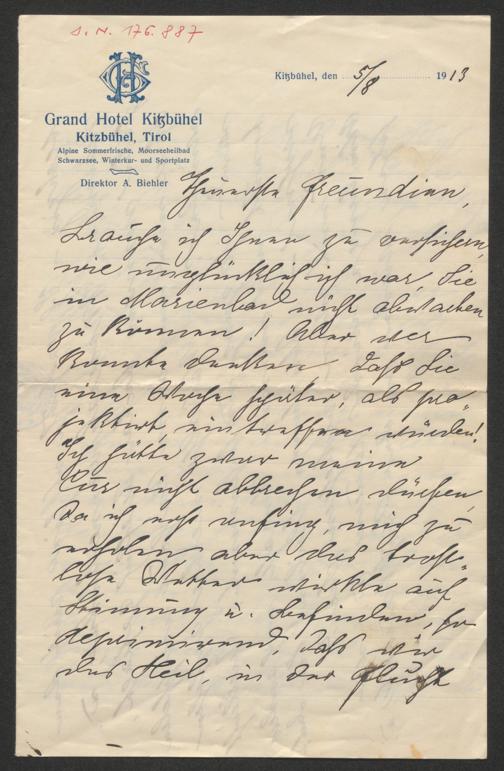 S. N. 176.887
Kitzbühel, den 5/8 1913
Grand Hotel Kitzbühel
Kitzbühel, Tirol
Alpine Sommerfrische, Moorseeheilbad
Schwarzsee, Winterkur- und Sportplatz
Direktor A. Biehler
Theuerste Freundien,
Brauche ich Ihnen zu versichern,
wie unglücklich ich war, Sie
in Marienbad nicht abwarten
zu können! Aber wer
konnte denken, daß Sie
eine Woche später, als pro„
jektirt, eintreffen würden!
Ich hätte zwar meine
Cur nicht abbrechen dürfen,
da ich erst anfing, mich zu
erholen aber das trost„
lose Wetter wirkte auf
Stimung u. Befinden, so
deprimirend, daß wir
das Heil, in der Flucht